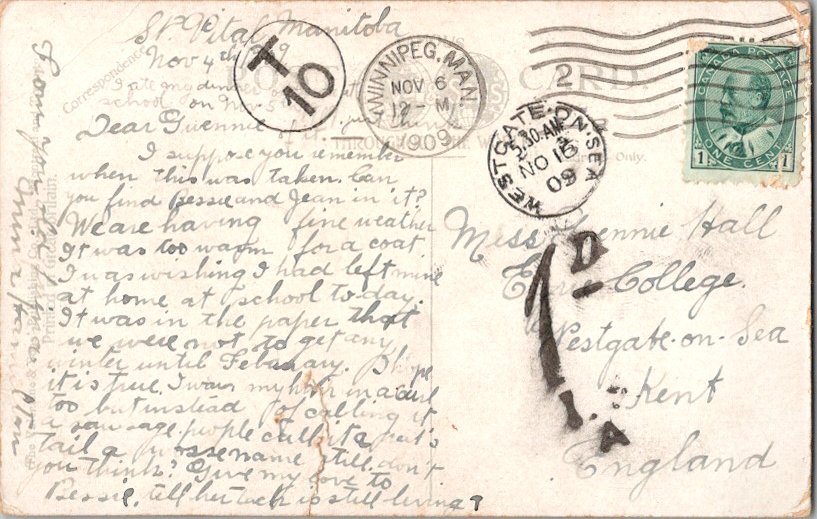 St. Vital Manitoba
Nov 4th 09
Correspondence
I ate my dinner at
school on Nov 5
Dear Gwennie
I suppose you remember
when this was taken. Can
you find Bessie and Jean in it?
We are having fine weather
It was too warm for a coat
I was wishing I had left mine
at home at school to-day.
It was in the paper that
we were not to get any
winter until February. I hope
it is true. I wear my hair in a curl
too but instead of calling it
a sausage people call it a pig's
tail a worse name still don't
you think? Give my love to
Bessie, tell her is still living
T
10
WINNIPEG, MAN.
NOV 6
12 - M
1909
CARD.
THROUGHOUT THE WORLD
Only.
2
WESTGATE-ON-SEA
5.30 AM
NO 16
09
CANADA POSTAGE
1 ONE CENT 1
Miss Gwennie Hall
College.
Westgate-on-Sea
Kent
England
1
D